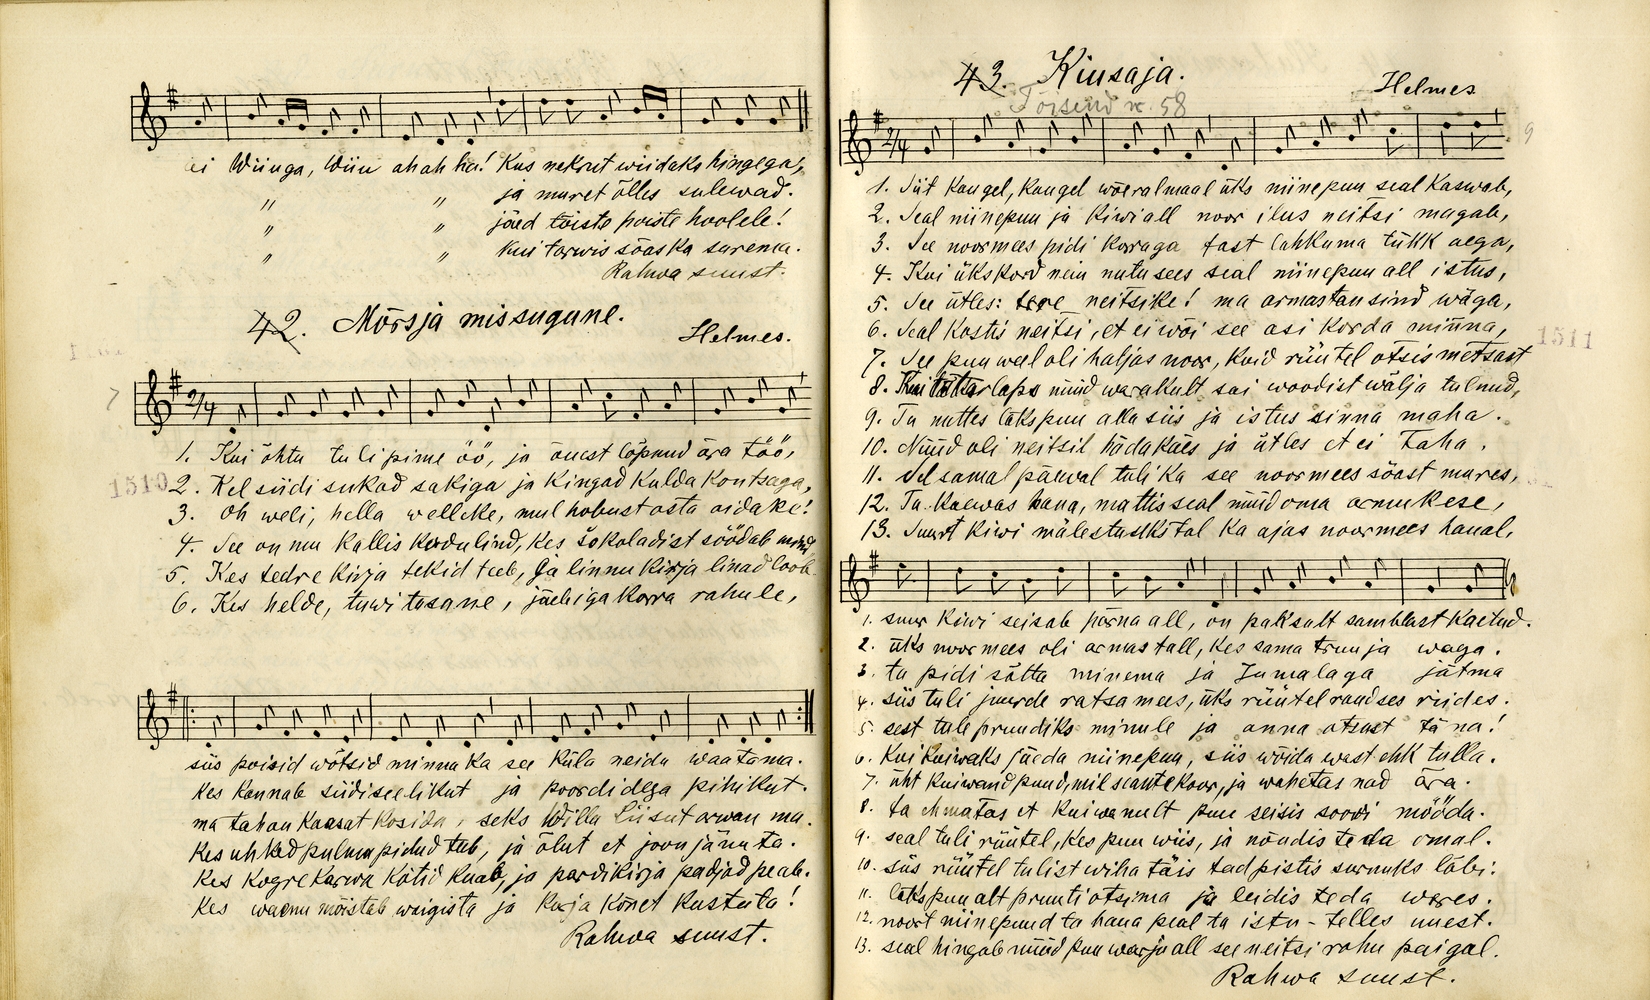 ei Wiinga, Wiiu ahah ha! Kus nekrut wiidaks hingega,
" " ja muret õlles sulewad.
" " jäed tõiste poiste hoolele!
" " kui tarwis sõaska surema.
Rahwa suust.
42. Mõrsja missugune.
Helmes.
7
2/4
1. Kui õhtu tuli pime öö, ja õuest lõpnud ära töö,
1510
2. Kel siidi sukad sakiga ja Kingad Kulda Kontsaga,
3. Oh weli, hella welleke, mul hobust osta aidake!
4. See on mu Kallis Kodulind, kes šokoladist söödab mind,
5. Kes tedre kirja tekid teeb, ja linnu Kirja linad loob
6. Kes helde, tuwi tasane, jäebiga Korra rahule,
siis poisid wõtsid minnu Ka see Küla neidu waatama.
Kes kannab siidiseelikut ja poordidega pihikut.
ma tahan Kaasat Kosida, seks Willa Liisut arwan ma.
Kes uhked pulmapidud teeb, ja õlut et joon jänuta.
Kes Kogre Karwa Kotid Kuab, ja pardikirja padjad peab.
Kes waenu mõistab waigista ja Kurja Kõnet Kustuta!
Rahwa suust.
43. Kiusaja.
Helmes
Tõisend nr. 58
2/4
9
1. Siit Kaugel, Kaugel wõeral maal üks niinepuu seal Kaswab,
2. Seal niinepuu ja Kiwi all noor ilus neitsi magab,
3. See noormees pidi Korraga tast lahkuma tükk aega,
4. Kui ükskord nein nutu sees seal niinepuu all istus,
5. See ütles: tere neitsike! ma armastan sind wäga,
6. Seal Kostis neitsi, et ei wõi see asi Korda minna,
1511
7. See puu weel oli haljas noor, Kuid rüütel otsis metsast
8. Kui tütarlaps nüüd warakult sai woodist wälja tulnud,
9. Ta nuttes läks puu alla siis ja istus sinna maha.
10. Nüüd oli neitsil häda Käes ja ütles et ei taha.
11. Sel samal päewal tuli Ka see noormees sõast mures,
12. Ta Kaewas haua, mattis seal nüüd oma armukese,
13. Suurt Kiwi mälestusKs tal Ka ajas noormees haual,
1. suur Kiwi seisab pärna all, on paksult samblast Kaetud.
2. üks noormees oli armas tall, Kes sama truu ja waga.
3. ta pidi sõtta minema ja Jumalaga jätma
4. siis tuli juurde ratsamees, üks rüütel raudses riides.
5. sest tule pruudiks minule ja anna otsust täna!
6. Kui Kuiwaks jääda niinepuu, siis wõida wast ehk tulla.
7. üht Kuiwand puud, mil seante Koor, ja wahetas nad ära.
8. ta ehmatas et Kuiwanult puu seisis soowi mööda.
9. seal tuli rüütel, Kes puu wiis, ja nõudis teda omal.
10. siis rüütel tulist wiha täis tad pistis surnuks läbi.
11. läks puu alt pruuti otsima ja leidis teda weres.
12. noort niinepuud ta haua peal ta istu-telles uuest.
13. seal hingab nüüd puu warju all see neitsi rahu paigal.
Rahwa suust.